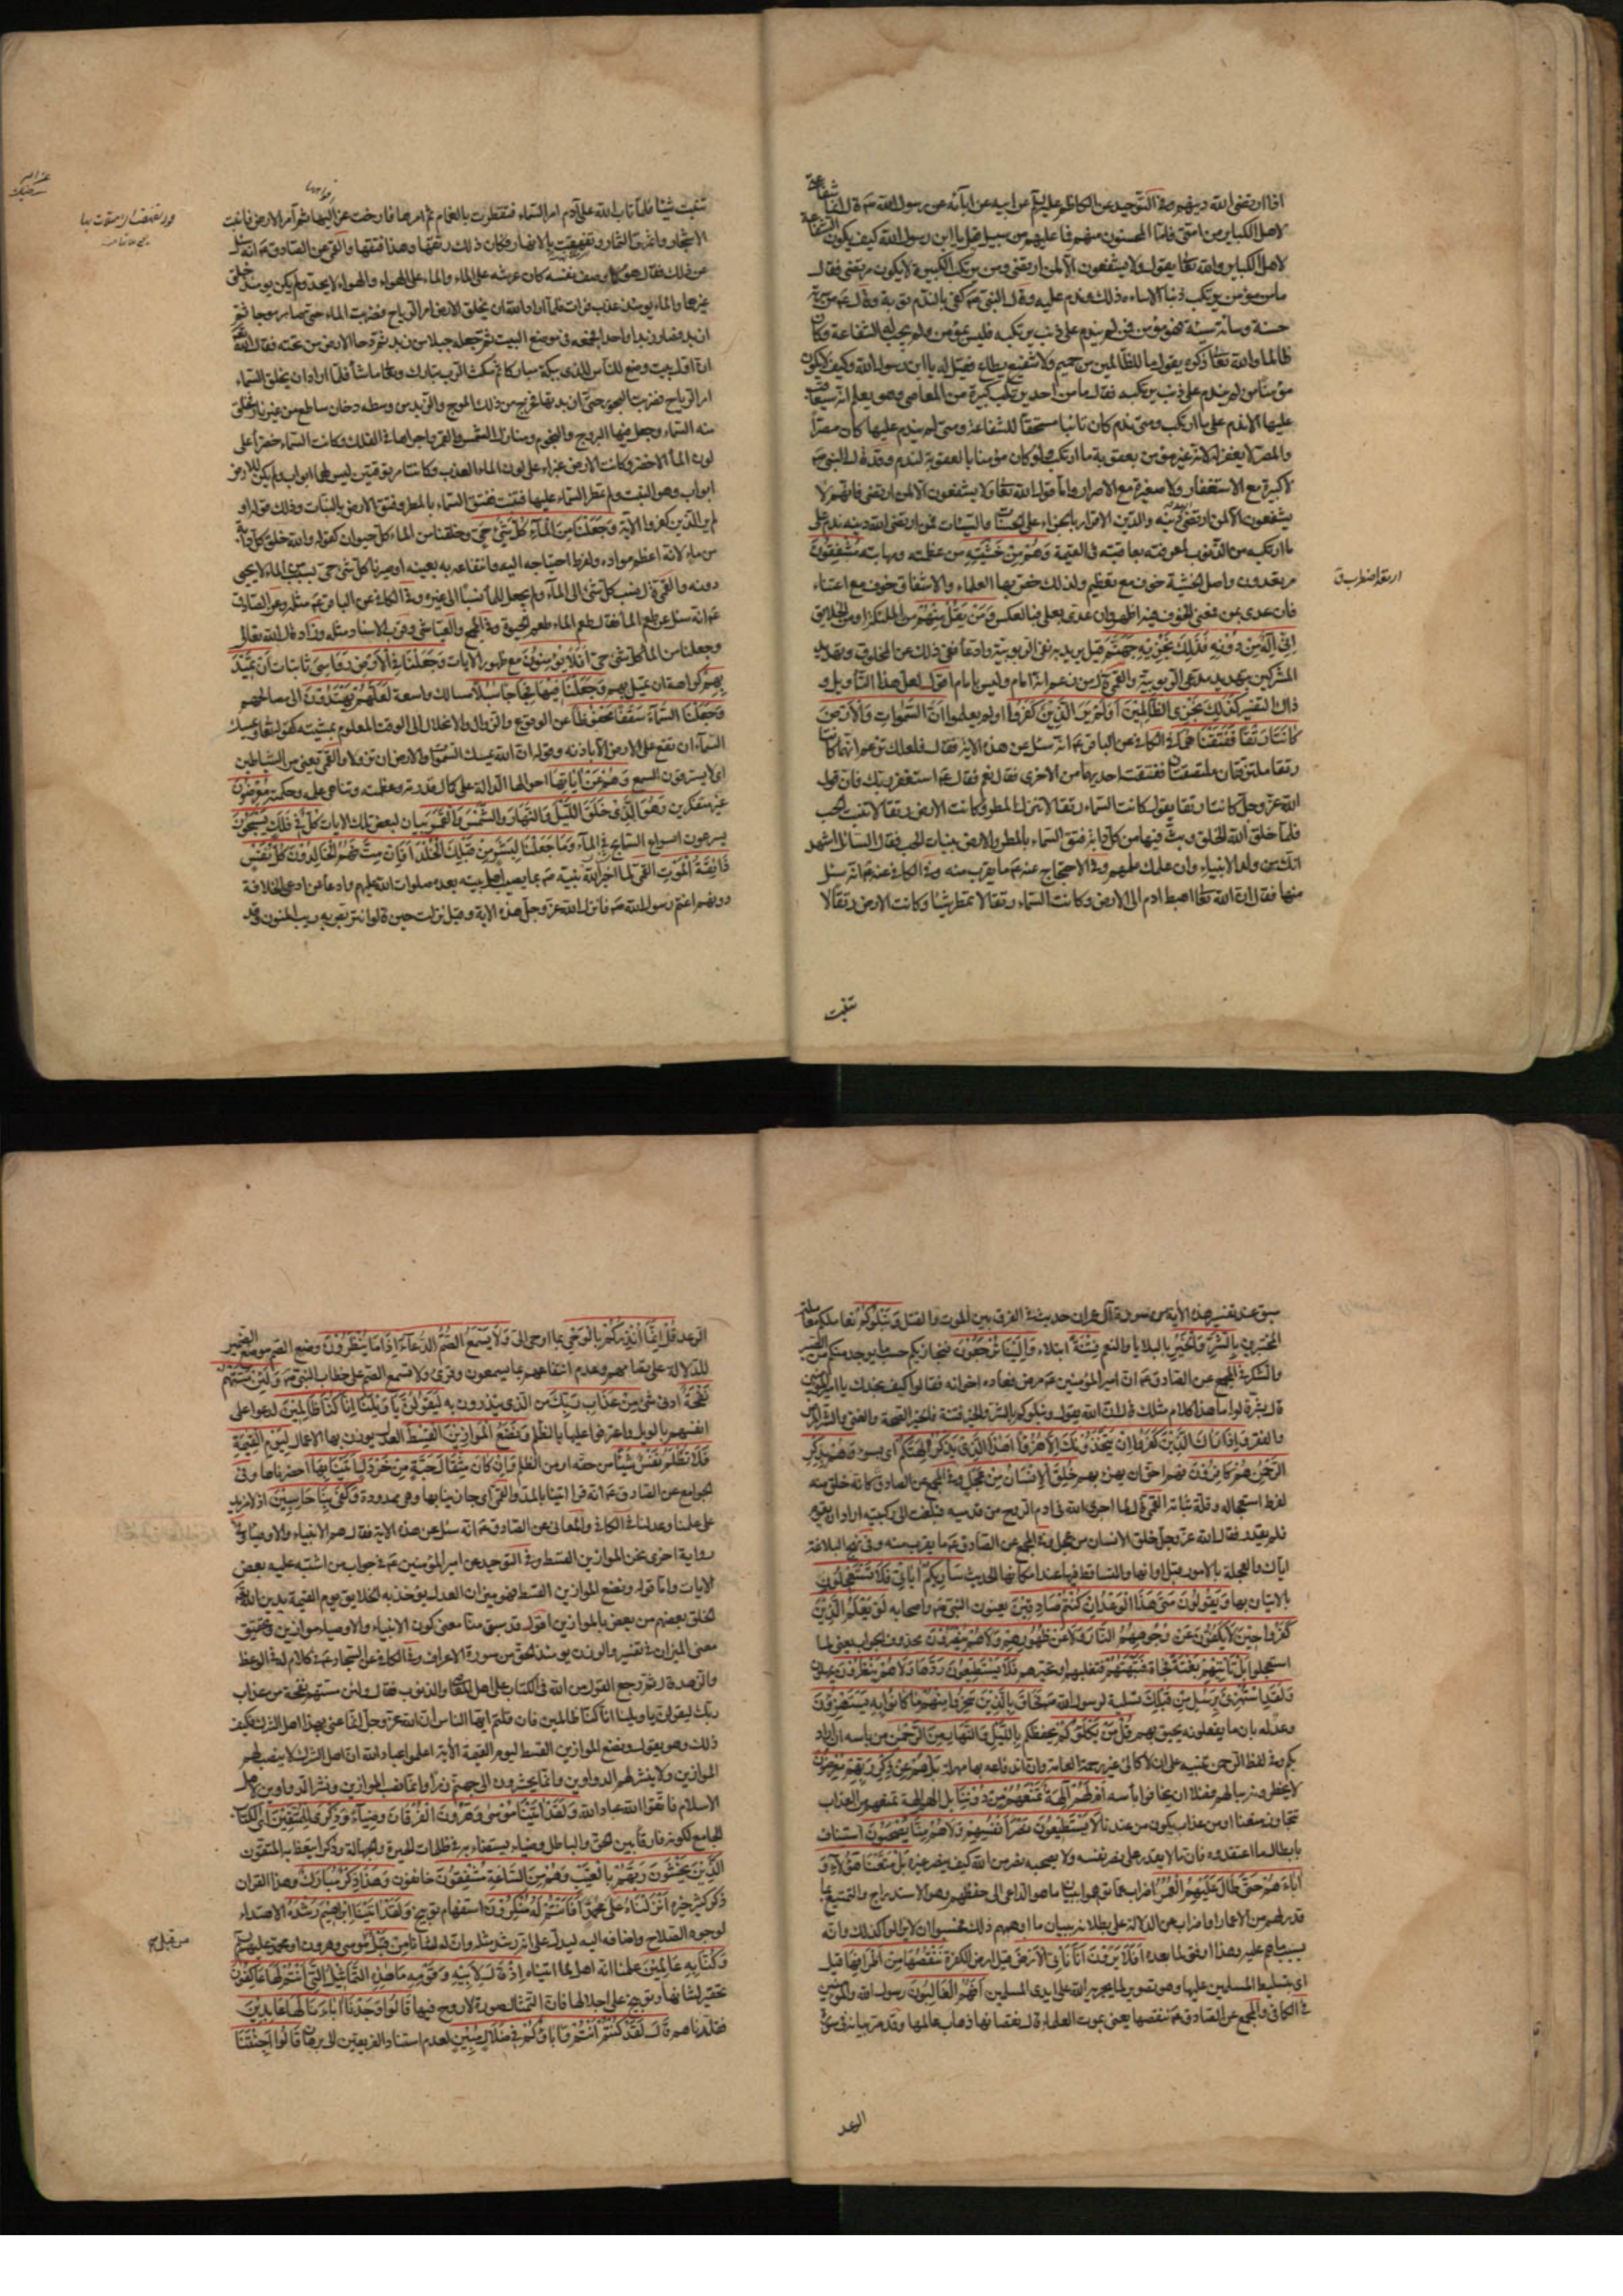 اذا ارتضى الله دينهم وفي التوحيد عن الكاظم عليه السلم عن ابيه عن ابائه عن رسول الله ص قال انما شفاعتى
لاهل الكباير من امتى فاما المحسنون منهم فما عليهم من سبيل قيل يا ابن رسول الله كيف يكون الشفاعة
لاهل الكباير والله تعا يقول ولا يشفعون الا لمن ارتضى ومن يرتكب الكبيرة لا يكون مرتضى فقال
ما من مؤمن يرتكب ذنبا الا ساءه ذلك وندم عليه وقال النبى ص كفى بالندم توبة وقال ص من سرته
حسنة وسائته سيئة فهو مؤمن فمن لم يندم على ذنب يرتكبه فليس بمؤمن ولم يجب له الشفاعة وكان
ظالما والله تعا ذكره يقول ما للظالمين من حميم ولا شفيع يطاع فقيل له يا ابن رسول الله وكيف لا يكون
مؤمنا من لم يندم على ذنب يرتكبه فقال ما من احد يرتكب كبيرة من المعاصى وهو يعلم انه سيعاقب
عليها الا ندم على ما ارتكب ومتى ندم كان تائبا مستحقا للشفاعة ومتى لم يندم عليها كان مصرا
والمصر لا يغفر له لانه غير مؤمن بعقوبة ما ارتكب ولو كان مؤمنا بالعقوبة لندم وقد قال النبى ص
لا كبيرة مع الاستغفار ولا صغيرة مع الاصرار واما قول الله تعا ولا يشفعون الا لمن ارتضى فانهم لا
يشفعون الا لمن ارتضى دينه والدين الاقرار بالجزاء على الحسنات والسيئات فمن ارتضى الله دينه ندم على
ما ارتكبه من الذنوب لمعرفته بعاقبته في القيمة وَهُمْ مِنْ خَشْيَتِهِ من عظمته ومهابته مُشْفِقُونَ
مرتعدون واصل الخشية خوف مع تعظيم ولذلك خص بها العلماء والاشفاق خوف مع اعتناء
فان عدى بمن فمعنى الخوف فيه اظهر وان عدى بعلى فبالعكس وَمَنْ يَقُلْ مِنْهُمْ من الملئكة او من الخلايق
اِنّى اِلهٌ مِنْ دُونِهِ فَذلِكَ نَجْزِيهِ جَهَنَّمَ قيل يريد به نفى الربوبية وادعاء نفى ذلك عن المخلوق وتهديد
المشركين بتهديد مدعى الربوبية والقمى قال من زعم انه امام وليس بامام اقول لعل هذا التأويل و
ذاك التفسير كَذلِكَ نَجْزِى الظّالِمِينَ اَوَلَمْ يَرَ الَّذِينَ كَفَرُوا اولم يعلموا اَنَّ السَّموَاتِ وَالْاَرْضَ
كَانَتَا رَتْقًا فَفَتَقْنَاهُمَا في الكافى عن الباقر ع انه سئل عن هذه الاية فقال فلعلك تزعم انهما كانتا
رتقا ملتزقتان ملتصقتان ففتقت احديهما من الاخرى فقال نعم فقال ع استغفر ربك فان قول
الله عز وجل كانتا رتقا يقول كانت السماء رتقا لا تنزل المطر وكانت الارض رتقا لا تنبت الحب
فلما خلق الله الخلق وبث فيها من كل دابة فتق السماء بالمطر والارض بنبات الحب فقال السائل اشهد
انك من ولد الانبياء وان علمك علمهم وفي الاحتجاج عنه ع ما يقرب منه وفي الكافى عنه ع انه سئل
عنها فقال ان الله تعا اهبط ادم الى الارض وكانت السماء رتقا لا تمطر شيئا وكانت الارض رتقا لا
تنبت
تنبت شيئا فلما تاب الله على آدم امر السماء فتقطرت بالغمام ثم امرها فارخت عزاليها ثم امر الارض فانبتت
الاشجار واثمرت الثمار وتفهقت بالانهار فكان ذلك رتقها وهذا فتقها والقمى عن الصادق ع انه سئل
عن ذلك فقال هو كما وصف نفسه كان عرشه على الماء والماء على الهواء والهواء لا يحد ولم يكن يومئذ خلق
غيرهما والماء يومئذ عذب فرات فلما اراد الله ان يخلق الارض امر الرياح فضربت الماء حتى صار موجا ثم
ازبد فصار زبدا واحدا فجمعه في موضع البيت ثم جعله جبلا من زبد ثم دحا الارض من تحته فقال الله
ان اول بيت وضع للناس للذى ببكة مباركا ثم مكث الرب تبارك وتعا ما شاء فلما اراد ان يخلق السماء
امر الرياح فضربت البحور حتى ازبدتها فخرج من ذلك الموج والزبد من وسطه دخان ساطع من غير نار فخلق
منه السماء وجعل فيها البروج والنجوم ومنازل الشمس والقمر واجراها في الفلك وكانت السماء خضراء على
لون الماء الاخضر وكانت الارض غبراء على لون الماء العذب وكانتا مرتوقتين ليس لهما ابواب ولم يكن للارض
ابواب وهو النبت ولم تمطر السماء عليها فتنبت ففتق السماء بالمطر وفتق الارض بالنبات وذلك قوله او
لم ير الذين كفروا الآية وَجَعَلْنَا مِنَ الْمَاءِ كُلَّ شَىْءٍ حَىٍّ وخلقنا من الماء كل حيوان كقوله والله خلق كل دابة
من ماء لانه اعظم مواده ولفرط احتياجه اليه وانتفاعه به بعينه او صيرنا كل شىء حى بسبب الماء لا يحيى
دونه والقمى قال نسب كل شىء الى الماء ولم يجعل للماء نسبا الى غيره وفي الكافى عن الباقر ع مثله وعن الصادق
ع انه سئل عن طعم الماء فقال طعم الماء طعم الحيوة وفي المجمع والعياشى وقرب الاسناد مثله وزاد قال الله تعالى
وجعلنا من الماء كل شىء حى اَفَلَا يُؤْمِنُونَ مع ظهور الايات وَجَعَلْنَا فِى الْاَرْضِ رَوَاسِىَ ثابتات اَنْ تَمِيدَ
بِهِمْ كراهة ان تميل بهم وَجَعَلْنَا فِيهَا فِجَاجًا سُبُلًا مسالك واسعة لَعَلَّهُمْ يَهْتَدُونَ الى مصالحهم
وَجَعَلْنَا السَّمَاءَ سَقْفًا مَحْفُوظًا عن الوقوع والزوال والانحلال الى الوقت المعلوم بمشيته كقوله تعا ويمسك
السماء ان تقع على الارض الا باذنه وقوله ان الله يمسك السموات والارض ان تزولا والقمى يعنى من الشياطين
اى لا يسترقون السمع وَهُمْ عَنْ آيَاتِهَا احوالها الدالة على كمال قدرته وعظمته وتناهى علمه وحكمته مُعْرِضُونَ
غير متفكرين وَهُوَ الَّذِى خَلَقَ اللَّيْلَ وَالنَّهَارَ وَالشَّمْسَ وَالْقَمَرَ بيان لبعض تلك الايات كُلٌّ فِى فَلَكٍ يَسْبَحُونَ
يسرعون اسراع السابح في الماء وَمَا جَعَلْنَا لِبَشَرٍ مِنْ قَبْلِكَ الْخُلْدَ اَفَاِنْ مِتَّ فَهُمُ الْخَالِدُونَ كُلُّ نَفْسٍ
ذَائِقَةُ الْمَوْتِ القمى لما اخبر الله نبيه ص بما يصيب اهل بيته بعده صلوات الله عليهم وادعاء من ادعى الخلافة
دونهم اغتم رسول الله ص فانزل الله عز وجل هذه الاية وقيل نزلت حين قالوا نتربص به ريب المنون وقد
ارتعد اضطرب ق
سبق عند تفسير هذه الآية من سورة آل عمران حديث في الفرق بين الموت والقتل وَنَبْلُوكُمْ نعاملكم معاملة
المختبر بِالشَّرِّ وَالْخَيْرِ بالبلايا والنعم فِتْنَةً ابتلاء وَاِلَيْنَا تُرْجَعُونَ فنجازيكم حسب ما يوجد منكم من الصبر
والشكر في المجمع عن الصادق ع ان امير المؤمنين ع مرض فعاده اخوانه فقالوا كيف نجدك يا امير المؤمنين
قال بشر قالوا ما هذا كلام مثلك قال ان الله يقول ونبلوكم بالشر والخير فتنة فالخير الصحة والغنى والشر المرض
والفقر وَاِذَا رَاكَ الَّذِينَ كَفَرُوا اِنْ يَتَّخِذُونَكَ اِلَّا هُزُوًا اَهذَا الَّذِى يَذْكُرُ آلِهَتَكُمْ اى بسوء وَهُمْ بِذِكْرِ
الرَّحْمنِ هُمْ كَافِرُونَ فهم احق ان يهزء بهم خُلِقَ الْاِنْسَانُ مِنْ عَجَلٍ كانه خلق منه
لفرط استعجاله وقلة ثباته القمى قال لما اجرى الله في ادم الروح من قدميه فبلغت الى ركبتيه اراد ان يقوم
فلم يقدر فقال الله عز وجل خلق الانسان من عجل وفي المجمع عن الصادق ع ما يقرب منه وفي نهج البلاغة
اياك والعجلة بالامور قبل اوانها والتساقط فيها عند امكانها الحديث سَاُرِيكُمْ آيَاتِى فَلَا تَسْتَعْجِلُونِ
بالاتيان بها وَيَقُولُونَ مَتَى هَذَا الْوَعْدُ اِنْ كُنْتُمْ صَادِقِينَ يعنون النبى ص واصحابه لَوْ يَعْلَمُ الَّذِينَ
كَفَرُوا حِينَ لَا يَكُفُّونَ عَنْ وُجُوهِهِمُ النَّارَ وَلَا عَنْ ظُهُورِهِمْ وَلَا هُمْ يُنْصَرُونَ محذوف الجواب يعنى لما
استعجلوا بَلْ تَأْتِيهِمْ بَغْتَةً فجأة فَتَبْهَتُهُمْ فتغلبهم او تحيرهم فَلَا يَسْتَطِيعُونَ رَدَّهَا وَلَا هُمْ يُنْظَرُونَ يمهلون
وَلَقَدِ اسْتُهْزِئَ بِرُسُلٍ مِنْ قَبْلِكَ تسلية لرسول الله ص فَحَاقَ بِالَّذِينَ سَخِرُوا مِنْهُمْ مَا كَانُوا بِهِ يَسْتَهْزِؤُنَ
وعد له بان ما يفعلونه يحيق بهم قُلْ مَنْ يَكْلَؤُكُمْ يحفظكم بِاللَّيْلِ وَالنَّهَارِ مِنَ الرَّحْمنِ من باسه ان اراد
بكم وفي لفظ الرحمن تنبيه على ان لا كالئ غير رحمته العامة وان اندفاعه بها مهلة بَلْ هُمْ عَنْ ذِكْرِ رَبِّهِمْ مُعْرِضُونَ
لا يخطرونه ببالهم فضلا ان يخافوا بأسه اَمْ لَهُمْ آلِهَةٌ تَمْنَعُهُمْ مِنْ دُونِنَا بل الهم الهة تمنعهم من العذاب
تتجاوز منعنا او من عذاب يكون من عندنا لَا يَسْتَطِيعُونَ نَصْرَ اَنْفُسِهِمْ وَلَا هُمْ مِنَّا يُصْحَبُونَ استيناف
بابطال ما اعتقدوه فان ما لا يقدر على نصر نفسه ولا يصحبه نصر من الله كيف ينصر غيره بَلْ مَتَّعْنَا هؤُلَاءِ وَ
آبَاءَهُمْ حَتَّى طَالَ عَلَيْهِمُ الْعُمُرُ اضراب عما توهموا ببيان ما هو الداعى الى حفظهم وهو الاستدراج والتمتيع بما
قدر لهم من الاعمار او اضراب عن الدلالة على بطلانه ببيان ما اوهمهم ذلك فحسبوا ان لا يزالوا كذلك وانه
بسبب ما هم عليه وهذا اوفق لما بعده اَفَلَا يَرَوْنَ اَنَّا نَأْتِى الْاَرْضَ قيل ارض الكفرة نَنْقُصُهَا مِنْ اَطْرَافِهَا قيل
اى بتسليط المسلمين عليها وهو تصوير لما يجريه الله على ايدى المسلمين اَفَهُمُ الْغَالِبُونَ رسول الله والمؤمنين
في الكافى والمجمع عن الصادق ع ننقصها يعنى بموت العلماء قال نقصانها ذهاب عالمها وقد مر بيانه في سورة
الرعد
الرعد قُلْ اِنَّمَا اُنْذِرُكُمْ بِالْوَحْىِ بما اوحى الى وَلَا يَسْمَعُ الصُّمُّ الدُّعَاءَ اِذَا مَا يُنْذَرُونَ وضع الصم موضع الضمير
للدلالة على تصامهم وعدم انتفاعهم بما يسمعون وقرئ ولا تسمع الصم على خطاب النبى ص وَلَئِنْ مَسَّتْهُمْ
نَفْحَةٌ ادنى شىء مِنْ عَذَابِ رَبِّكَ من الذى ينذرون به لَيَقُولُنَّ يَا وَيْلَنَا اِنَّا كُنَّا ظَالِمِينَ لدعوا على
انفسهم بالويل واعترفوا عليها بالظلم وَنَضَعُ الْمَوَازِينَ الْقِسْطَ العدل يوزن بها الاعمال لِيَوْمِ الْقِيمَةِ
فَلَا تُظْلَمُ نَفْسٌ شَيْئًا من حقه او من الظلم وَاِنْ كَانَ مِثْقَالَ حَبَّةٍ مِنْ خَرْدَلٍ اَتَيْنَا بِهَا احضرناها وفي
الجوامع عن الصادق ع انه قرأ اتينا بالمد والقمى اى جازينا بها وهى ممدودة وَكَفَى بِنَا حَاسِبِينَ اذ لا مزيد
على علمنا وعدلنا في الكافى والمعانى عن الصادق ع انه سئل عن هذه الاية فقال هم الانبياء والاوصياء وفي
رواية اخرى نحن الموازين القسط وفي التوحيد عن امير المؤمنين ع في جواب من اشتبه عليه بعض
الايات واما قوله ونضع الموازين القسط فهو ميزان العدل يؤخذ به الخلايق يوم القيمة يدين الله تع
الخلق بعضهم من بعض بالموازين اقول قد سبق منا معنى كون الانبياء والاوصياء موازين وتحقيق
معنى الميزان في تفسير والوزن يومئذ الحق من سورة الاعراف وفي الكافى عن السجاد ع في كلام له في الوعظ
والزهد قال ثم رجع القول من الله في الكتاب على اهل المعاصى والذنوب فقال ولئن مستهم نفحة من عذاب
ربك ليقولن يا ويلنا انا كنا ظالمين فان قلتم ايها الناس ان الله عز وجل انما عنى بهذا اهل الشرك فكيف
ذلك وهو يقول ونضع الموازين القسط ليوم القيمة الآية اعلموا عباد الله ان اهل الشرك لا ينصب لهم
الموازين ولا ينشر لهم الدواوين وانما يحشرون الى جهنم زمرا وانما نصب الموازين ونشر الدواوين لاهل
الاسلام فاتقوا الله عباد الله وَلَقَدْ اتَيْنَا مُوسَى وَهرُونَ الْفُرْقَانَ وَضِيَاءً وَذِكْرًا لِلْمُتَّقِينَ اى الكتاب
الجامع لكونه فارقا بين الحق والباطل وضياء يستضاء به في ظلمات الحيرة والجهالة وذكرا يتعظ به المتقون
الَّذِينَ يَخْشَوْنَ رَبَّهُمْ بِالْغَيْبِ وَهُمْ مِنَ السَّاعَةِ مُشْفِقُونَ خائفون وَهذَا ذِكْرٌ مُبَارَكٌ وهذا القران
ذكر كثير خيره اَنْزَلْنَاهُ على محمد اَفَاَنْتُمْ لَهُ مُنْكِرُونَ استفهام توبيخ وَلَقَدْ اتَيْنَا اِبْرهِيمَ رُشْدَهُ الاهتداء
لوجوه الصلاح واضافه اليه ليدل على انه رشد مثله وان له لشأنا مِنْ قَبْلُ موسى وهرون او محمد عليهم السلم
وَكُنَّا بِهِ عَالِمِينَ علمنا انه اهل لما اتيناه اِذْ قَالَ لِاَبِيهِ وَقَوْمِهِ مَا هذِهِ التَّمَاثِيلُ الَّتِى اَنْتُمْ لَهَا عَاكِفُونَ
تحقير لشانها وتوبيخ على اجلالها فان التمثال صورة لا روح فيها قَالُوا وَجَدْنَا آبَاءَنَا لَهَا عَابِدِينَ
فقلدناهم قَالَ لَقَدْ كُنْتُمْ اَنْتُمْ وَآبَاؤُكُمْ فِى ضَلَالٍ مُبِينٍ لعدم استناد الفريقين الى برهان قَالُوا اَجِئْتَنَا